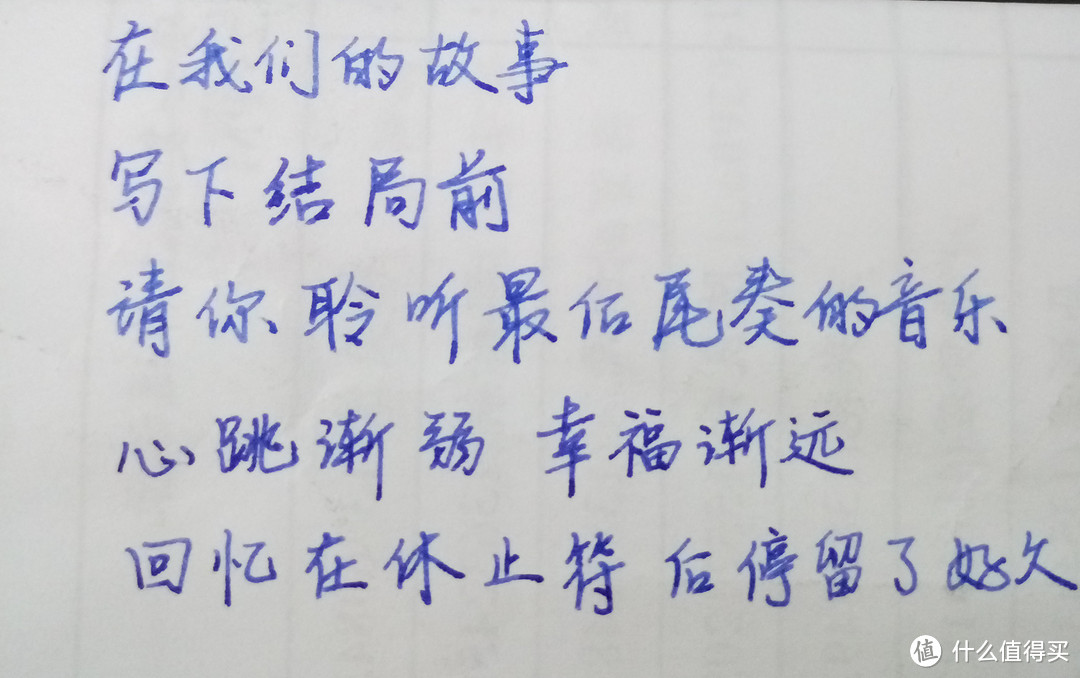 在我们的故事
写下结局前
请你聆听最后尾奏的音乐
心跳渐弱 幸福渐远
回忆在休止符后停留了好久
值 什么值得买